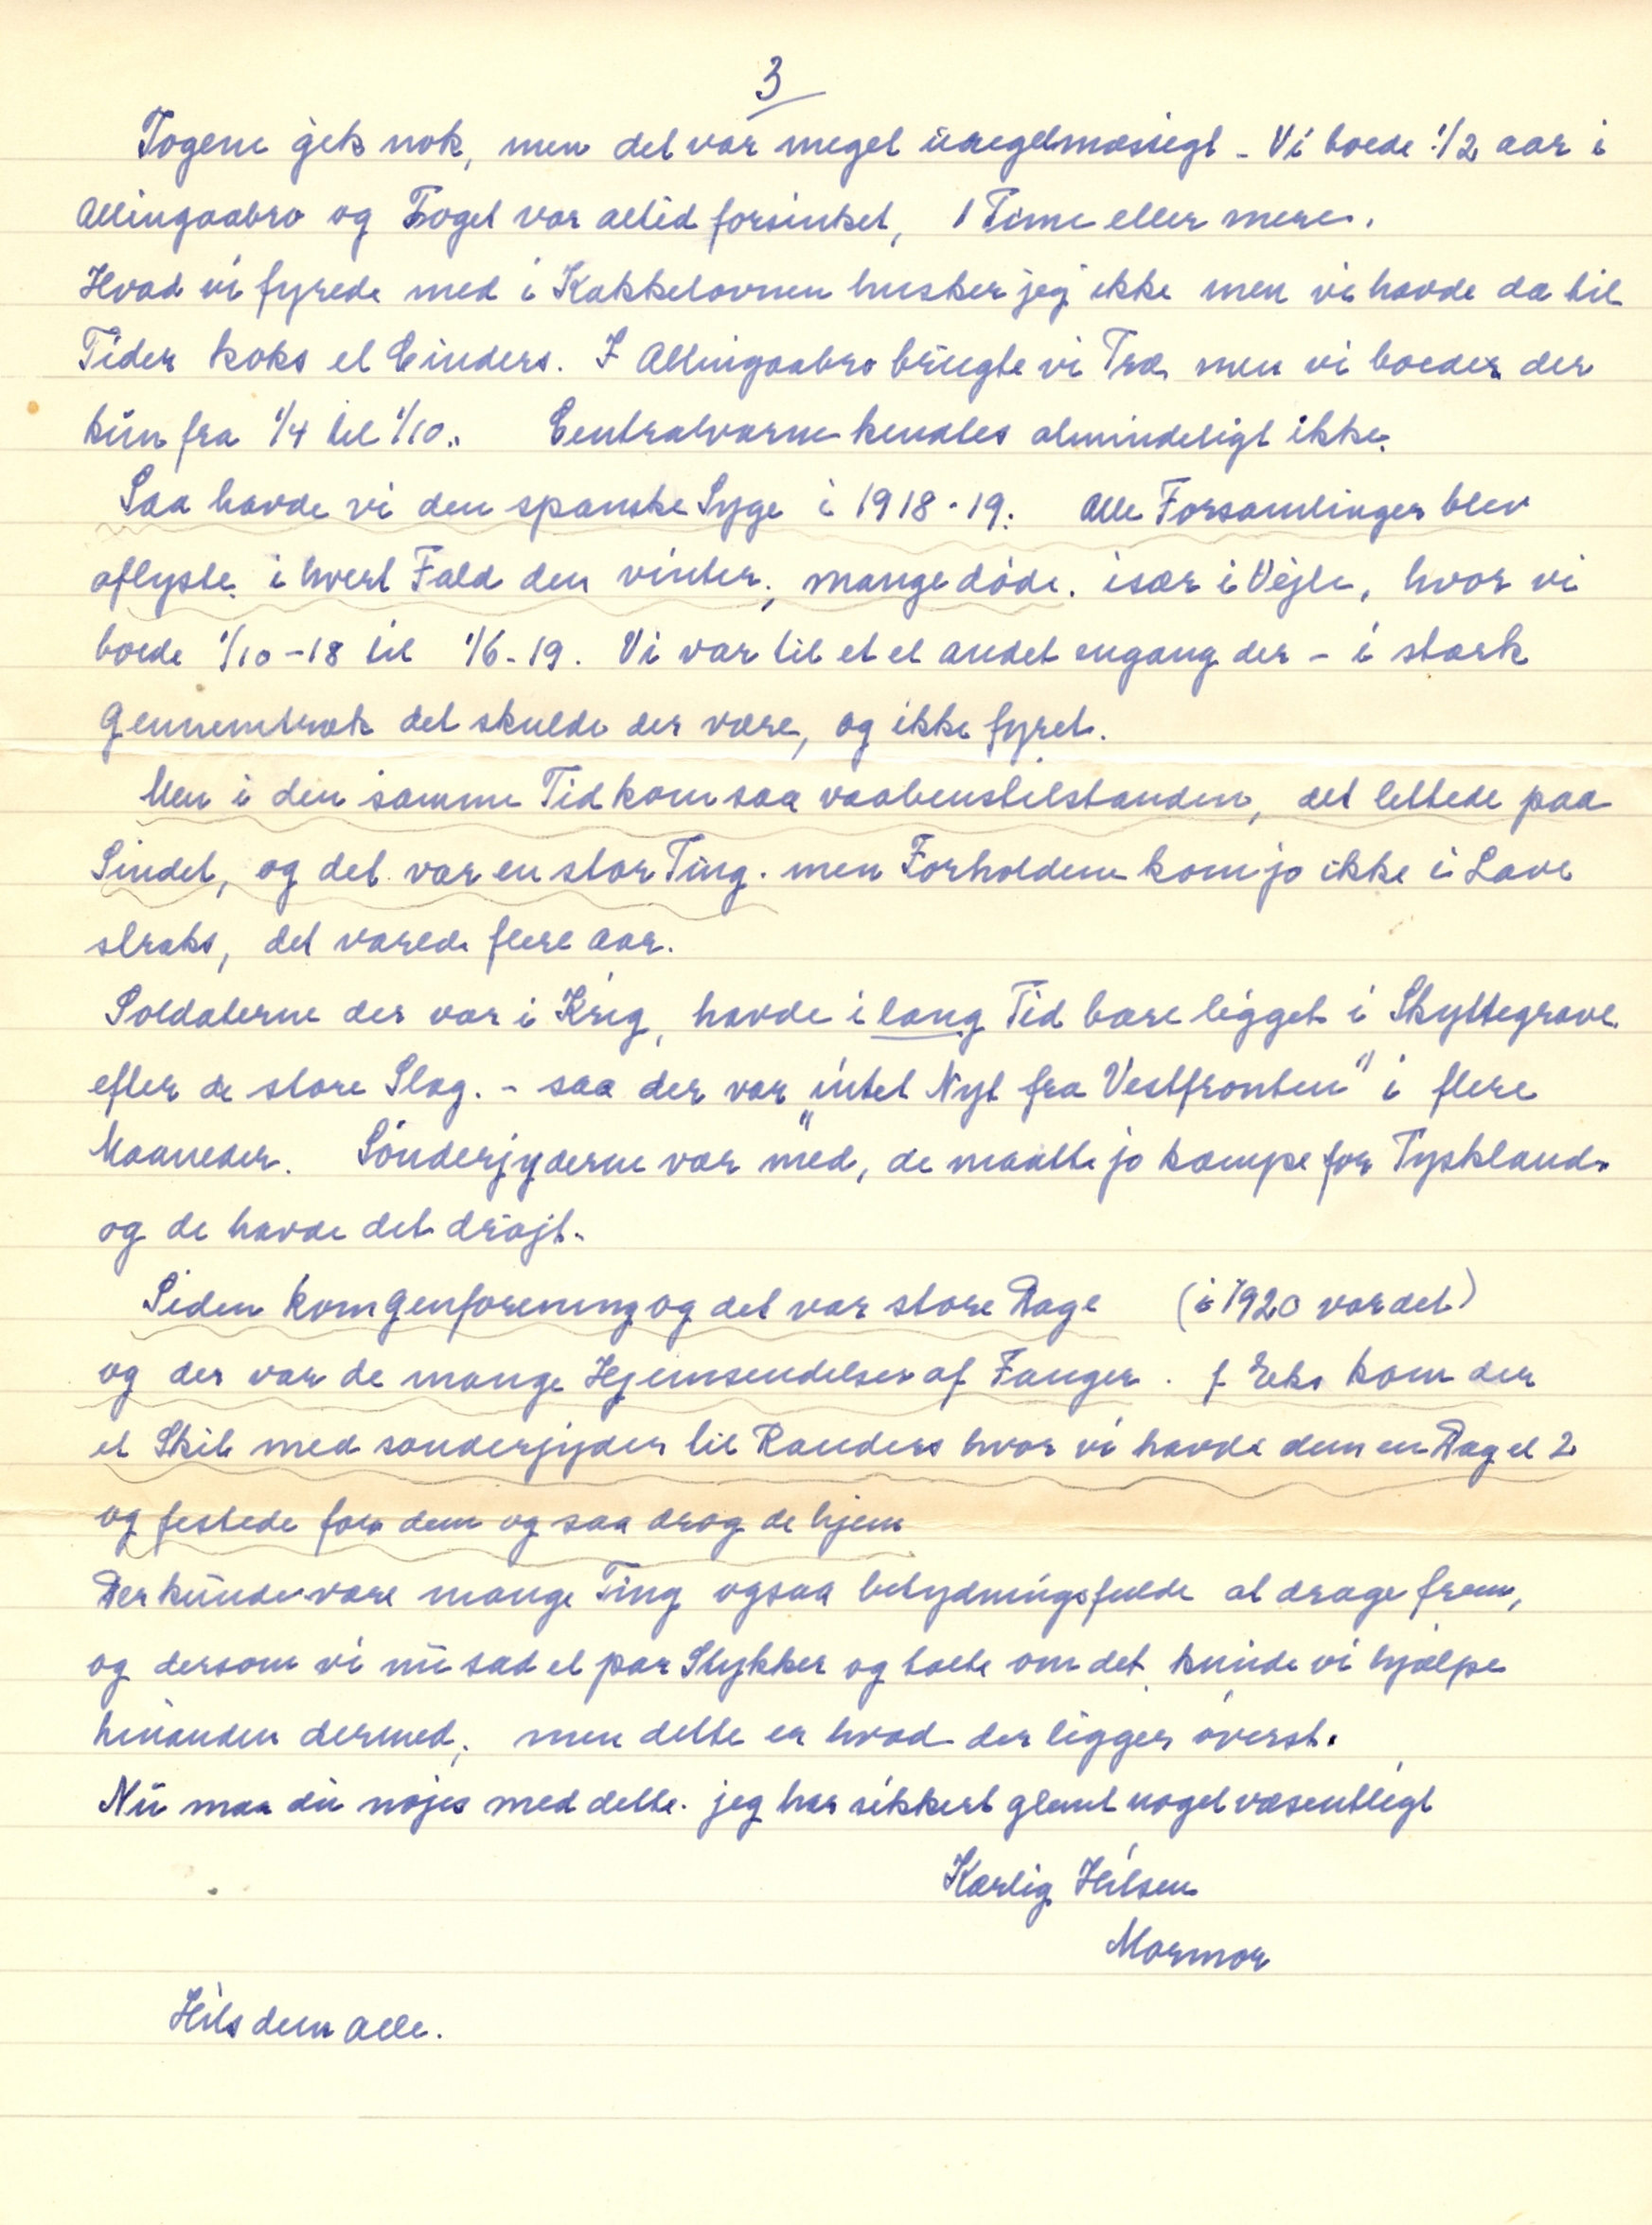 3
Togene gik nok, men det var meget uregelmæssigt - Vi boede 1/2 aar i
Allingaabro og Toget var altid forsinket, 1 Time eller mere.
Hvad vi fyrede med i Kakkelovnen husker jeg ikke men vi havde da til
Tider koks el Cinders. I Allingaabro brugte vi Træ, men vi boede der
kun fra 1/4 til 1/10. Centralvarme kendtes almindeligt ikke.
Saa havde vi den spanske Syge i 1918-19. Alle Forsamlinger blev
aflyste. i hvert Fald den vinter, mange døde. især i Vejle, hvor vi
boede 1/10-18 til 1/6-19. Vi var til et el andet engang der - i stærk
Gennemtræk det skulde der være, og ikke fyret.
Men i den samme Tid kom saa vaabenstilstanden, det lettede paa
Sindet, og det var en stor Ting. men Forholdene kom jo ikke i Lave
straks, det varede flere Aar.
Soldaterne der var i Krig, havde i lang Tid bare ligget i Skyttegrave
efter de store Slag. - saa der var "intet Nyt fra Vestfronten" i flere
Maaneder. Sönderjyderne var med, de maatte jo kæmpe for Tyskland.
og de havde det drøjt.
Siden kom Genforening og det var store Dage (i 1920 var det)
og der var de mange Hjemsendelser af Fanger. f Eks kom der
et Skib med sønderjyder til Randers hvor vi havde dem en Dag el 2
og festede for dem og saa drog de hjem
Der kunde være mange Ting ogsaa betydningsfulde at drage frem,
og dersom vi nu sad et par Stykker og talte om det kunde vi hjælpe
hinanden dermed, men dette er hvad der ligger øverst.
Nu maa du nøjes med dette. jeg har sikkert glemt noget væsentligt
Kærlig Hilsen
Mormor
Hils dem alle.